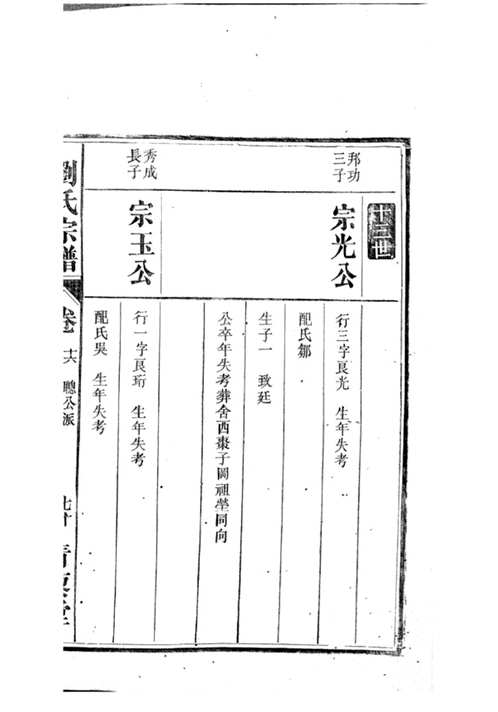 十三世
邦功
三子
宗光公
行三字良光 生年失考
配氏鄒
生子一 致廷
公卒年失考葬舍西棗子園祖塋同向
秀成
長子
宗玉公
行一字良珩 生年失考
配氏吳 生年失考
劉氏宗譜
卷
聰公派